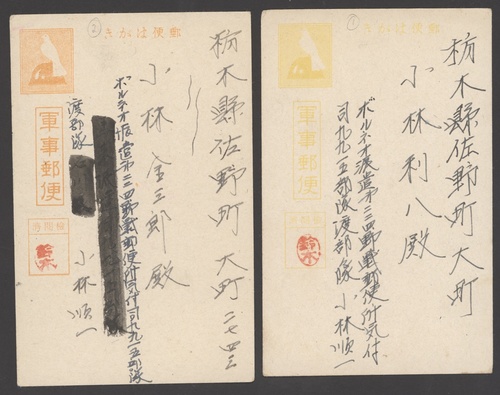 ②
郵便はがき
栃木縣佐野町大町二七四三
小林金三郎殿
ボルネオ派遣第三四野戰郵便所気付司九九一五部隊
渡部隊
小林順一
軍事郵便
檢閲済
鈴木
①
郵便はがき
栃木縣佐野町大町
小林利八殿
ボルネオ派遣第三四野戰郵便所気付
司九九一五部隊渡部隊 小林順一
軍事郵便
鈴木